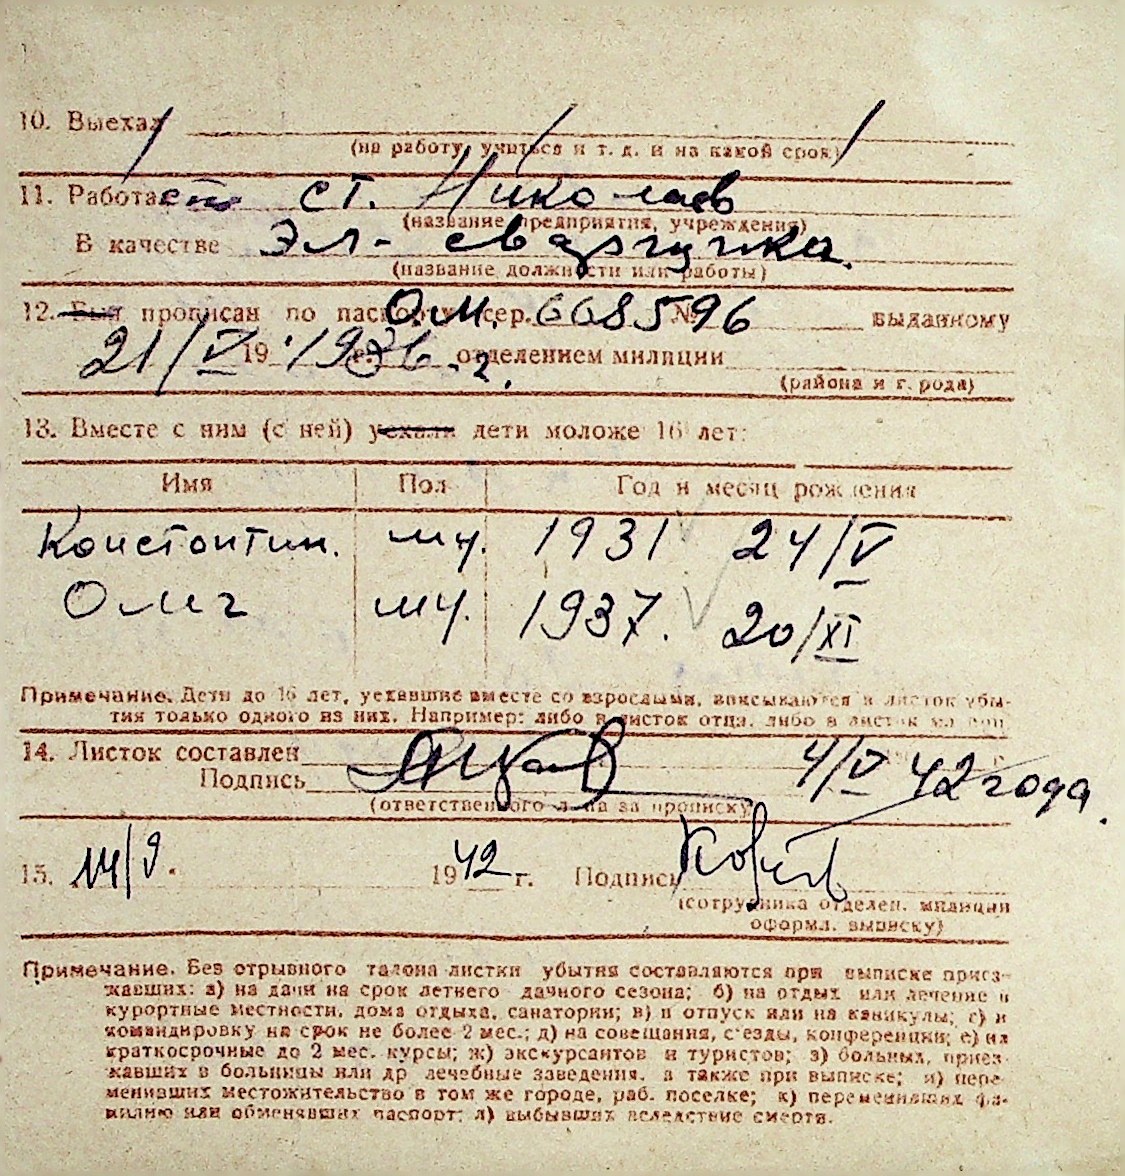 10. Выехал
(на работу, учиться и т. д. и на какой срок)
11. Работает ст. Николаев
(название предприятия, учреждения)
В качестве Эл-сварщика.
(название должности или работы)
12. Был прописан по паспорту сер. О.М. № 668596 выданному
21/V 19 1936 г. отделением милиции
(района и г. рода)
13. Вместе с ним (с ней) уехали дети моложе 16 лет:
Имя Пол Год и месяц рождения
Константин. му. 1931 24/V
Олег му. 1937. 20/XI
Примечание. Дети до 16 лет, уехавшие вместе со взрослыми, вписываются в листок убы-
тия только одного из них. Например: либо в листок отца, либо в листок
14. Листок составлен 4/V 42 года.
Подпись
(ответственного лица за прописку)
15. 14/V. 1942 г. Подпись
(сотрудника отделен. милиции
оформл. выписку)
Примечание. Без отрывного талона листки убытия составляются при выписке приез-
жавших: а) на дачи на срок летнего дачного сезона; б) на отдых или лечение в
курортные местности, дома отдыха, санатории; в) в отпуск или на каникулы; г) в
командировку на срок не более 2 мес.; д) на совещания, с'езды, конференции; е) на
краткосрочные до 2 мес. курсы; ж) экскурсантов и туристов; з) больных, приез-
жавших в больницы или др лечебные заведения, а также при выписке; и) пере-
менивших местожительство в том же городе, раб. поселке; к) переменивших фа-
милию или обменявших паспорт; л) выбывших вследствие смерти.